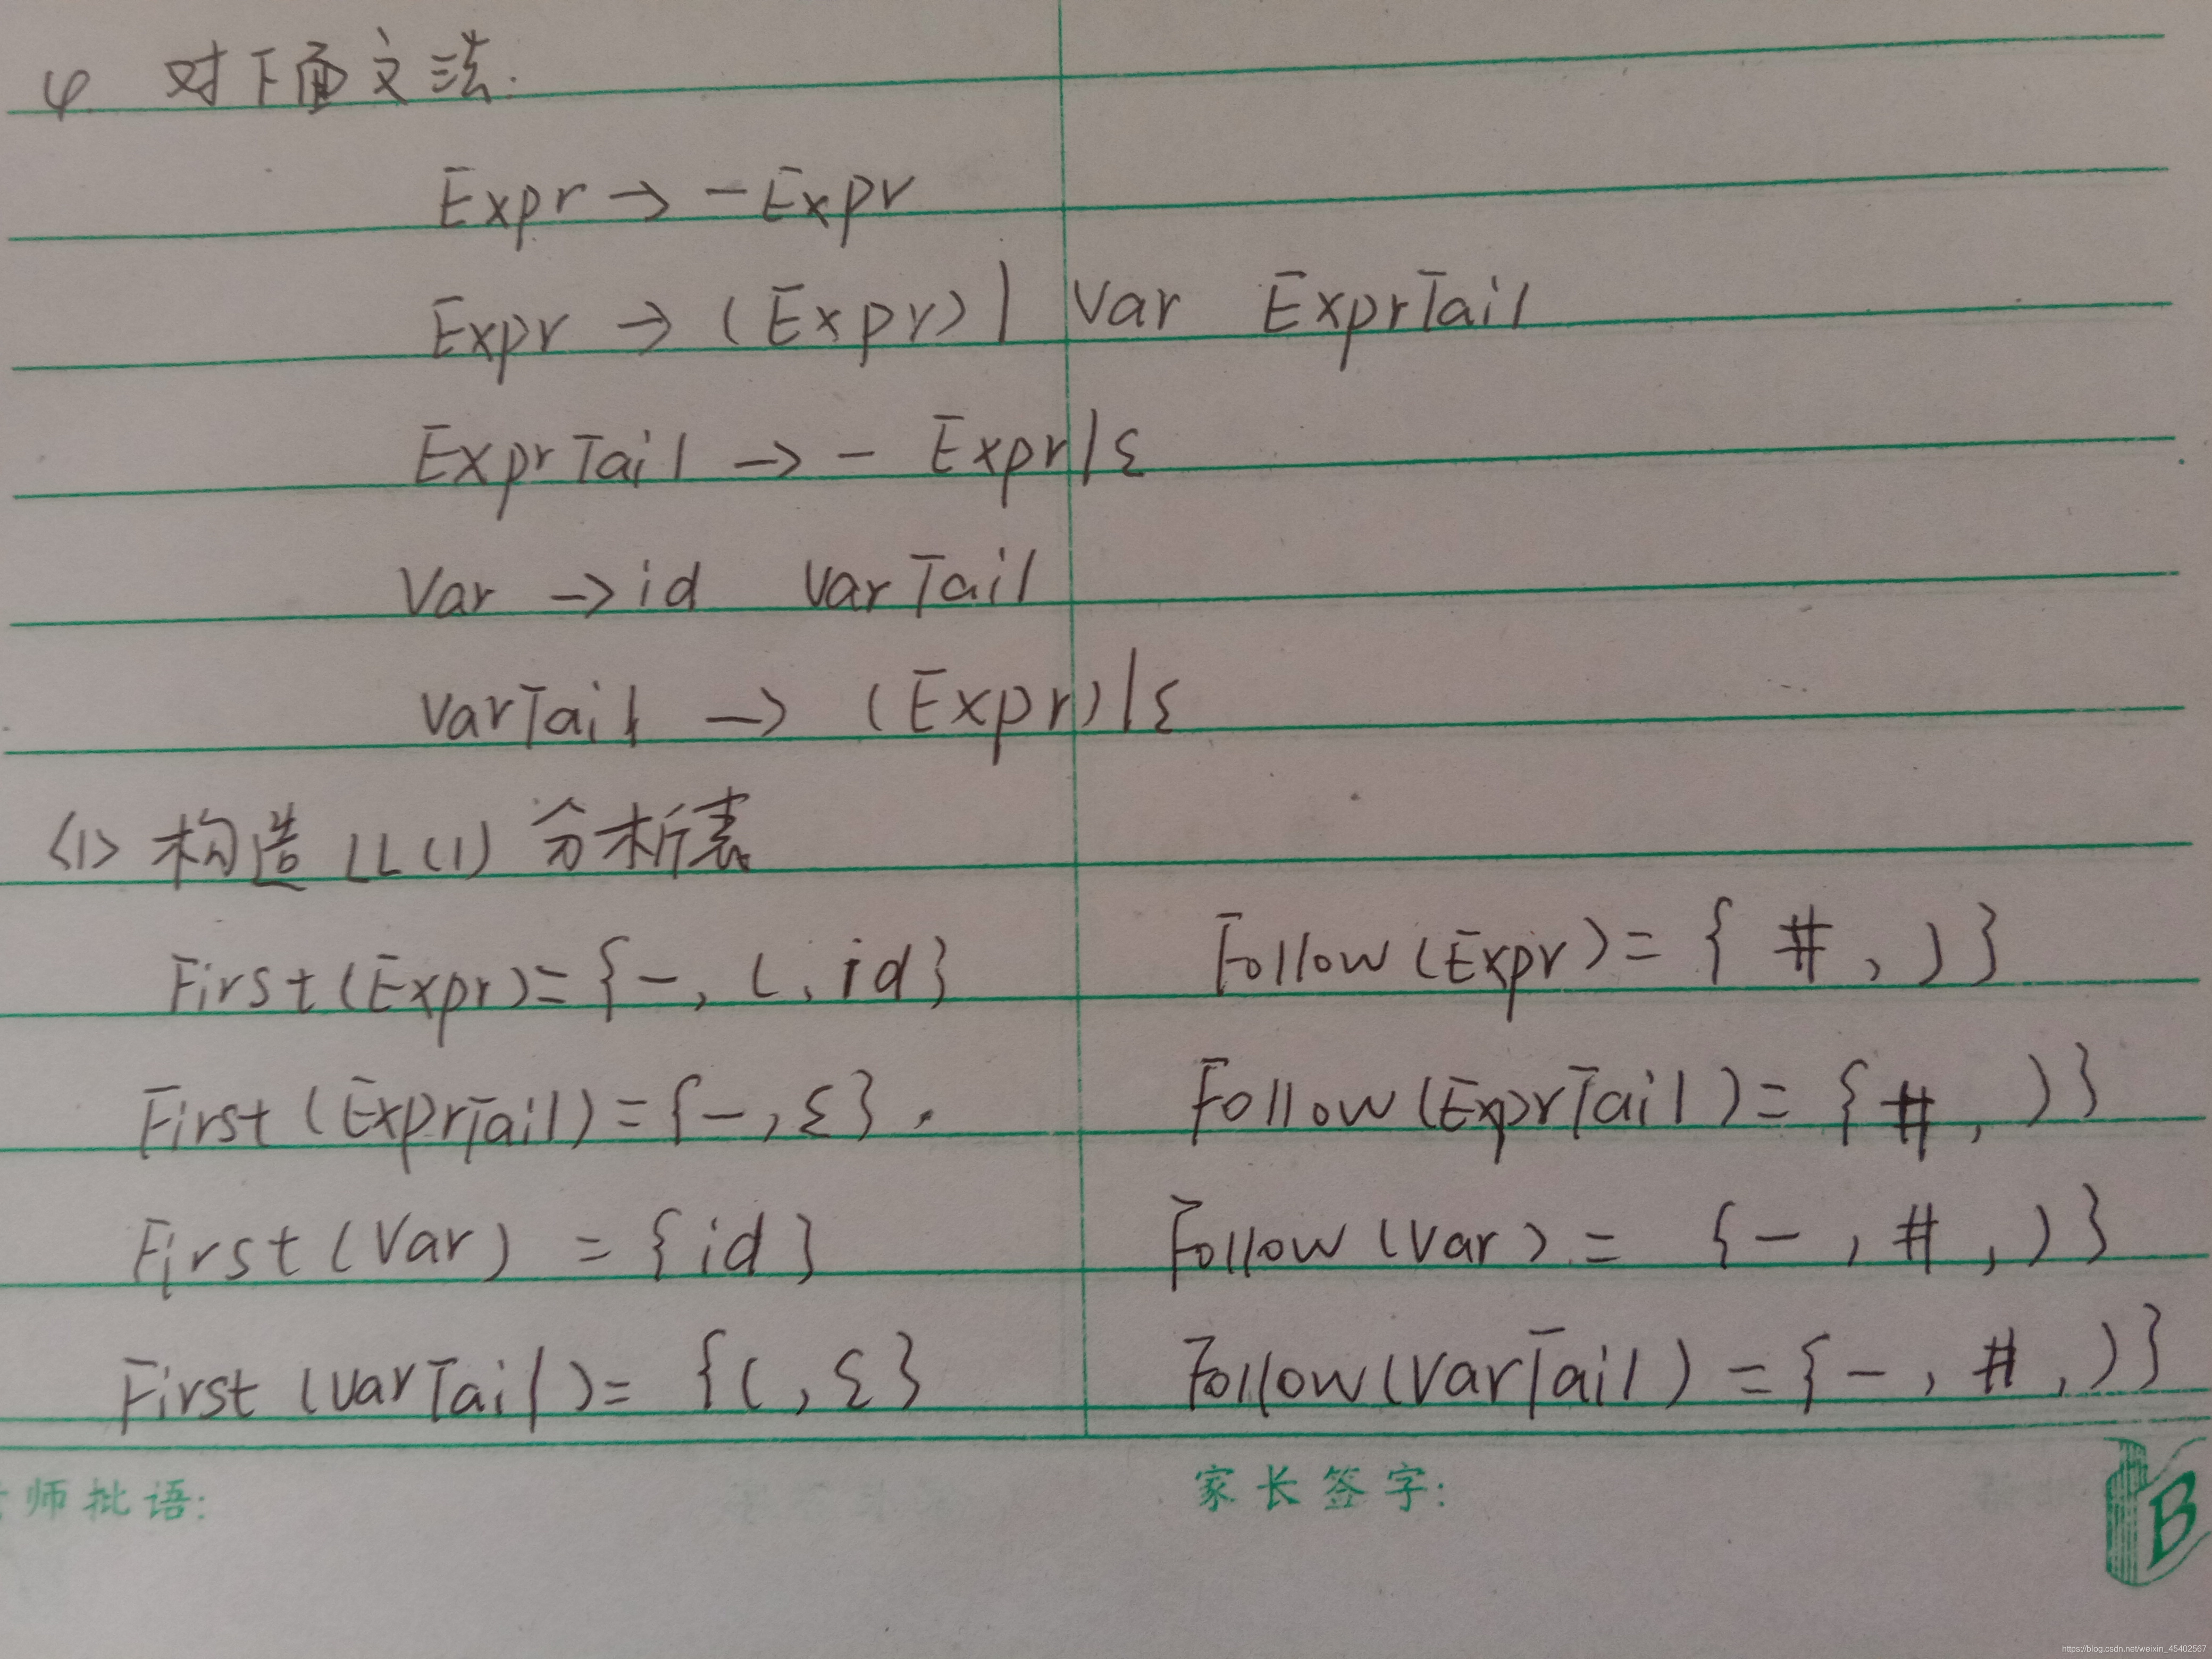 4 对下面文法:
Expr → -Expr
Expr → (Expr)| Var ExprTail
ExprTail → - Expr|ε
Var → id VarTail
VarTail → (Expr)|ε
(1) 构造 LL(1) 分析表
First(Expr)={-, (, id} Follow(Expr)={ #, )}
First(ExprTail)={-,ε}. Follow(ExprTail)={#, )}
First(Var) = {id} Follow(Var) = {-, #, )}
First(VarTail)= {(, ε} Follow(VarTail) = {-, #, )}
师批语: 家长签字:
B
https://blog.csdn.net/weixin_45402567